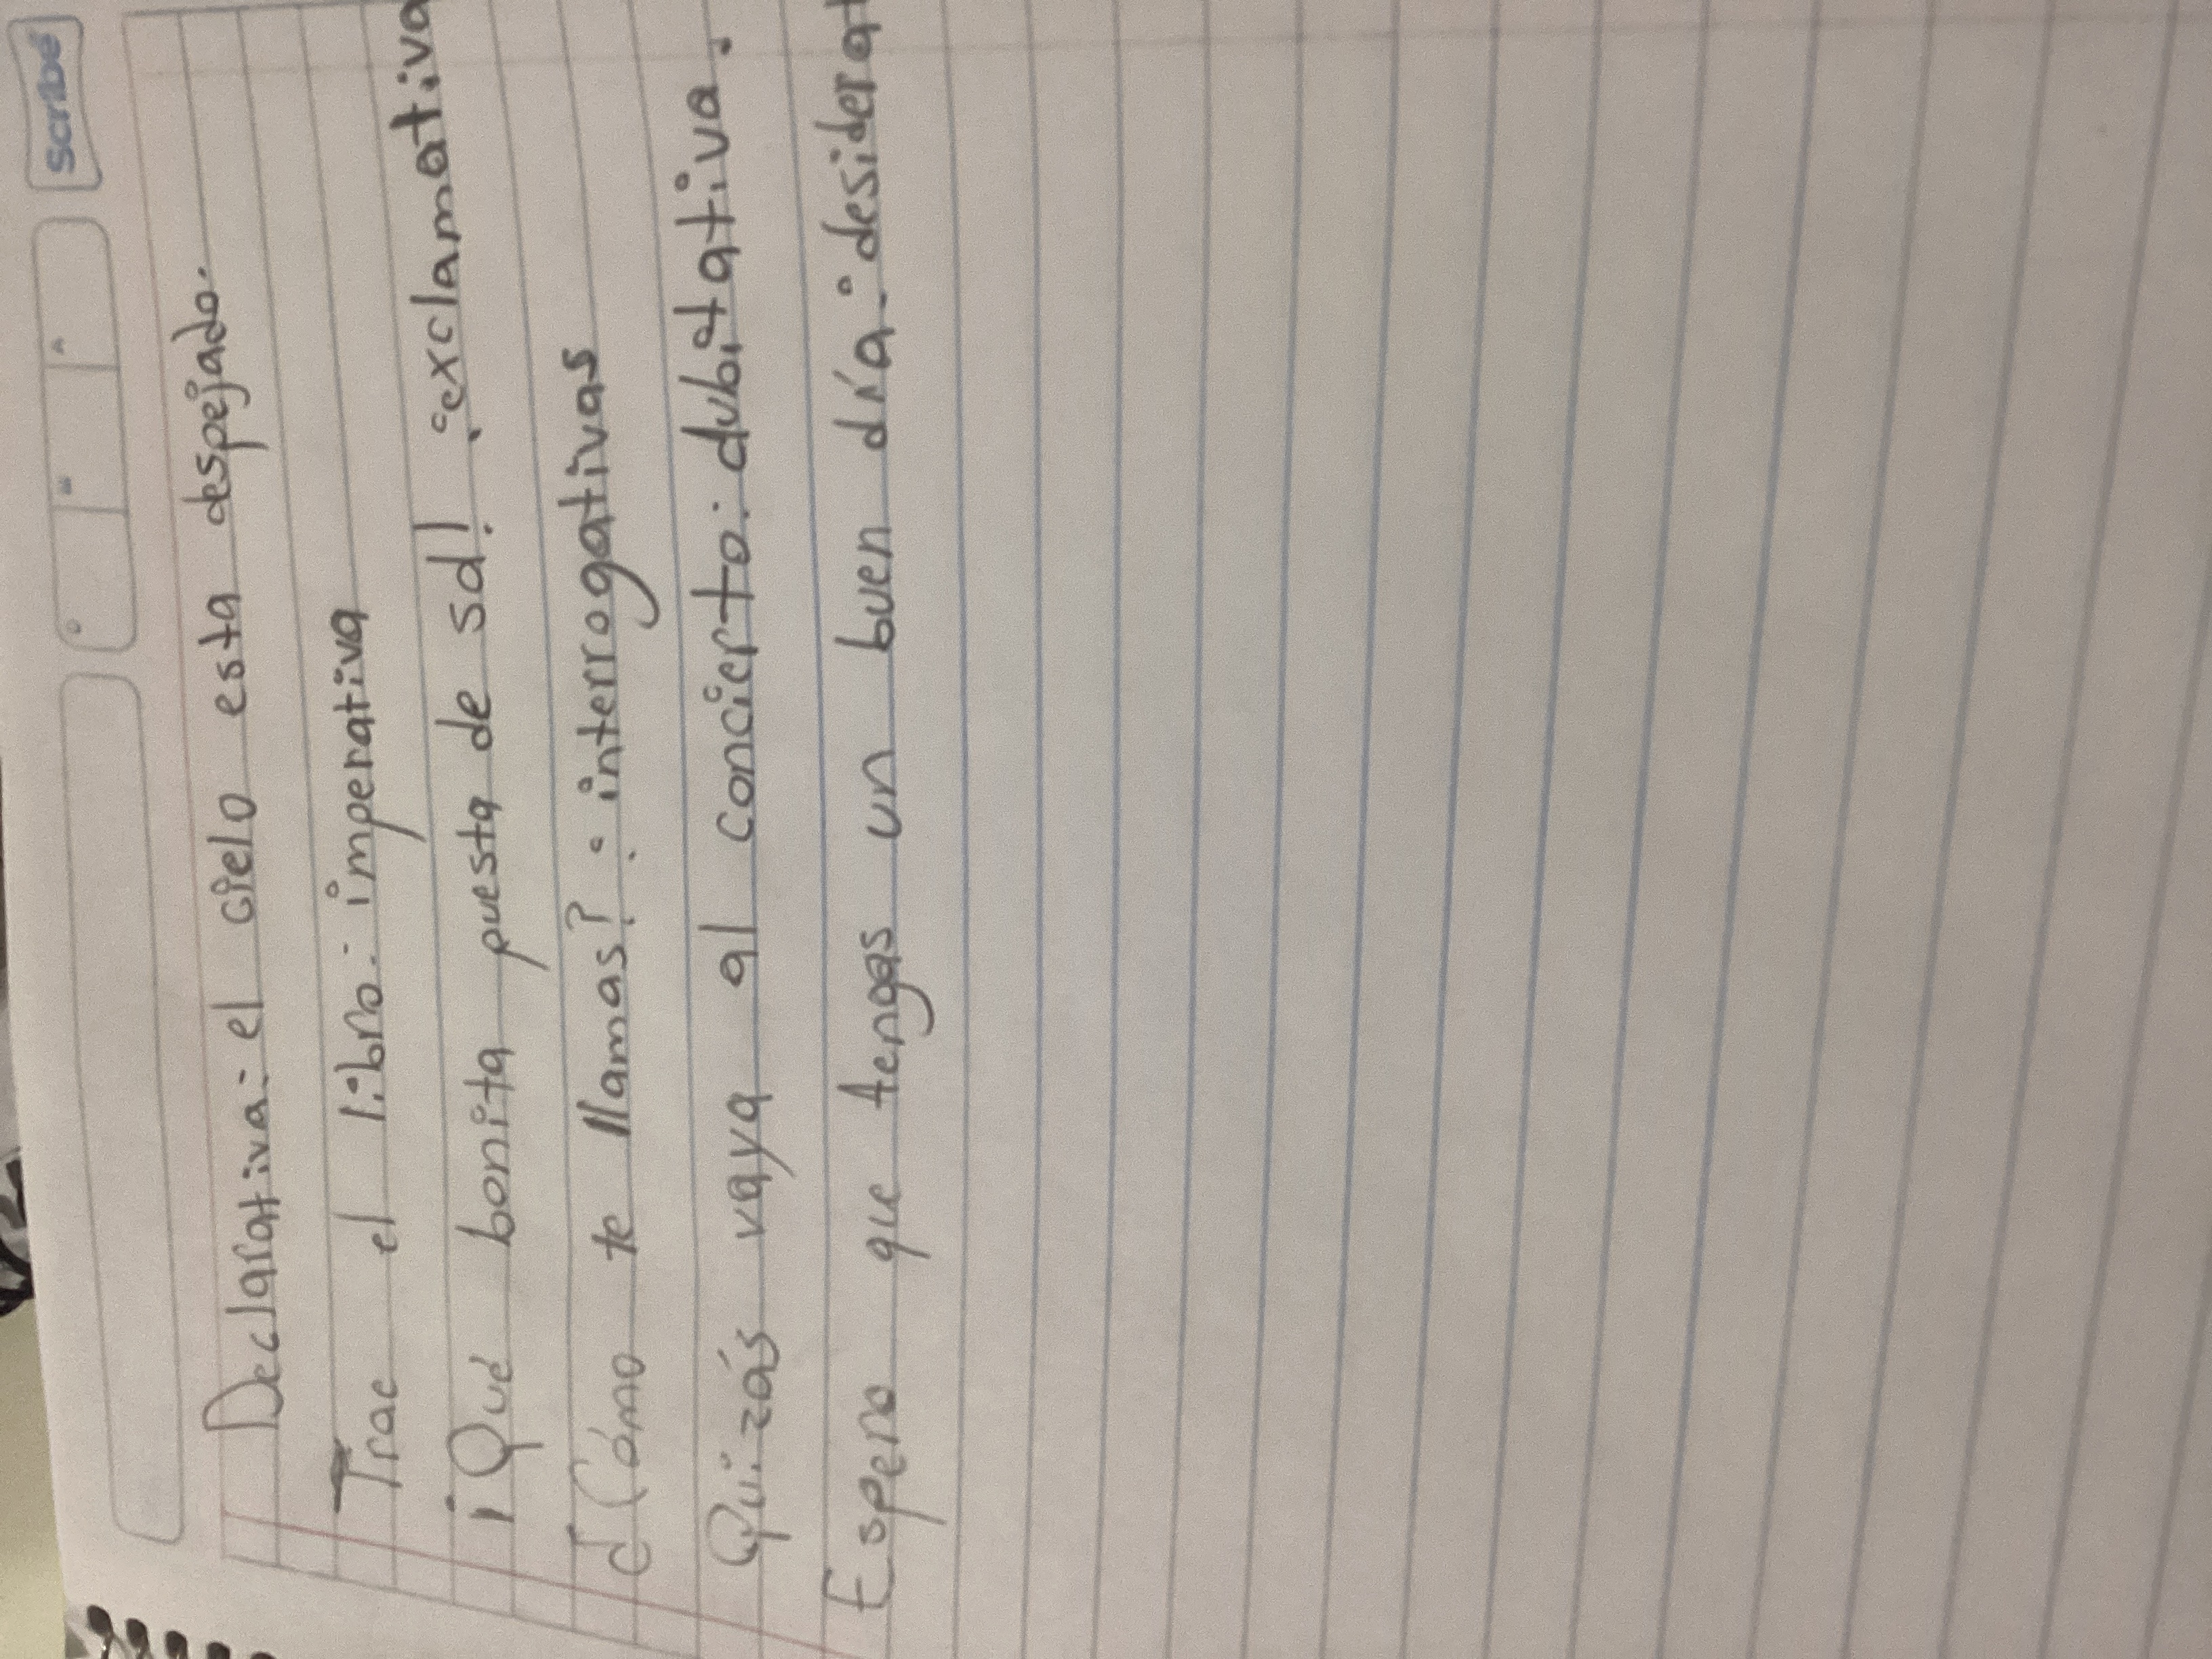 Scribe
D M A
Declarativa: el cielo esta despejado.
Trae el libro: imperativa
¡Qué bonita puesta de sol! :exclamativa
¿Cómo te llamas? : interrogativas
Quizás vaya al concierto: dubitativa.
Espero que tengas un buen día: desiderat